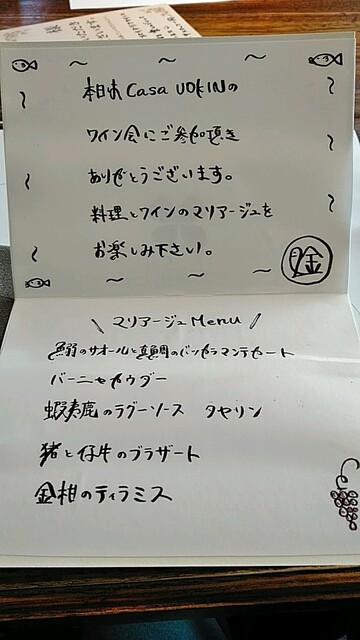 本日は Casa UOKINの
ワイン会にご参加頂き
ありがとうございます。
料理とワインのマリアージュを
お楽しみ下さい。
マリアージュMenu
鰯のサオールと真鯛のバッカラマンテカート
バーニャカウダー
蝦夷鹿のラグーソース タヤリン
猪と仔牛のブラザート
金柑のティラミス